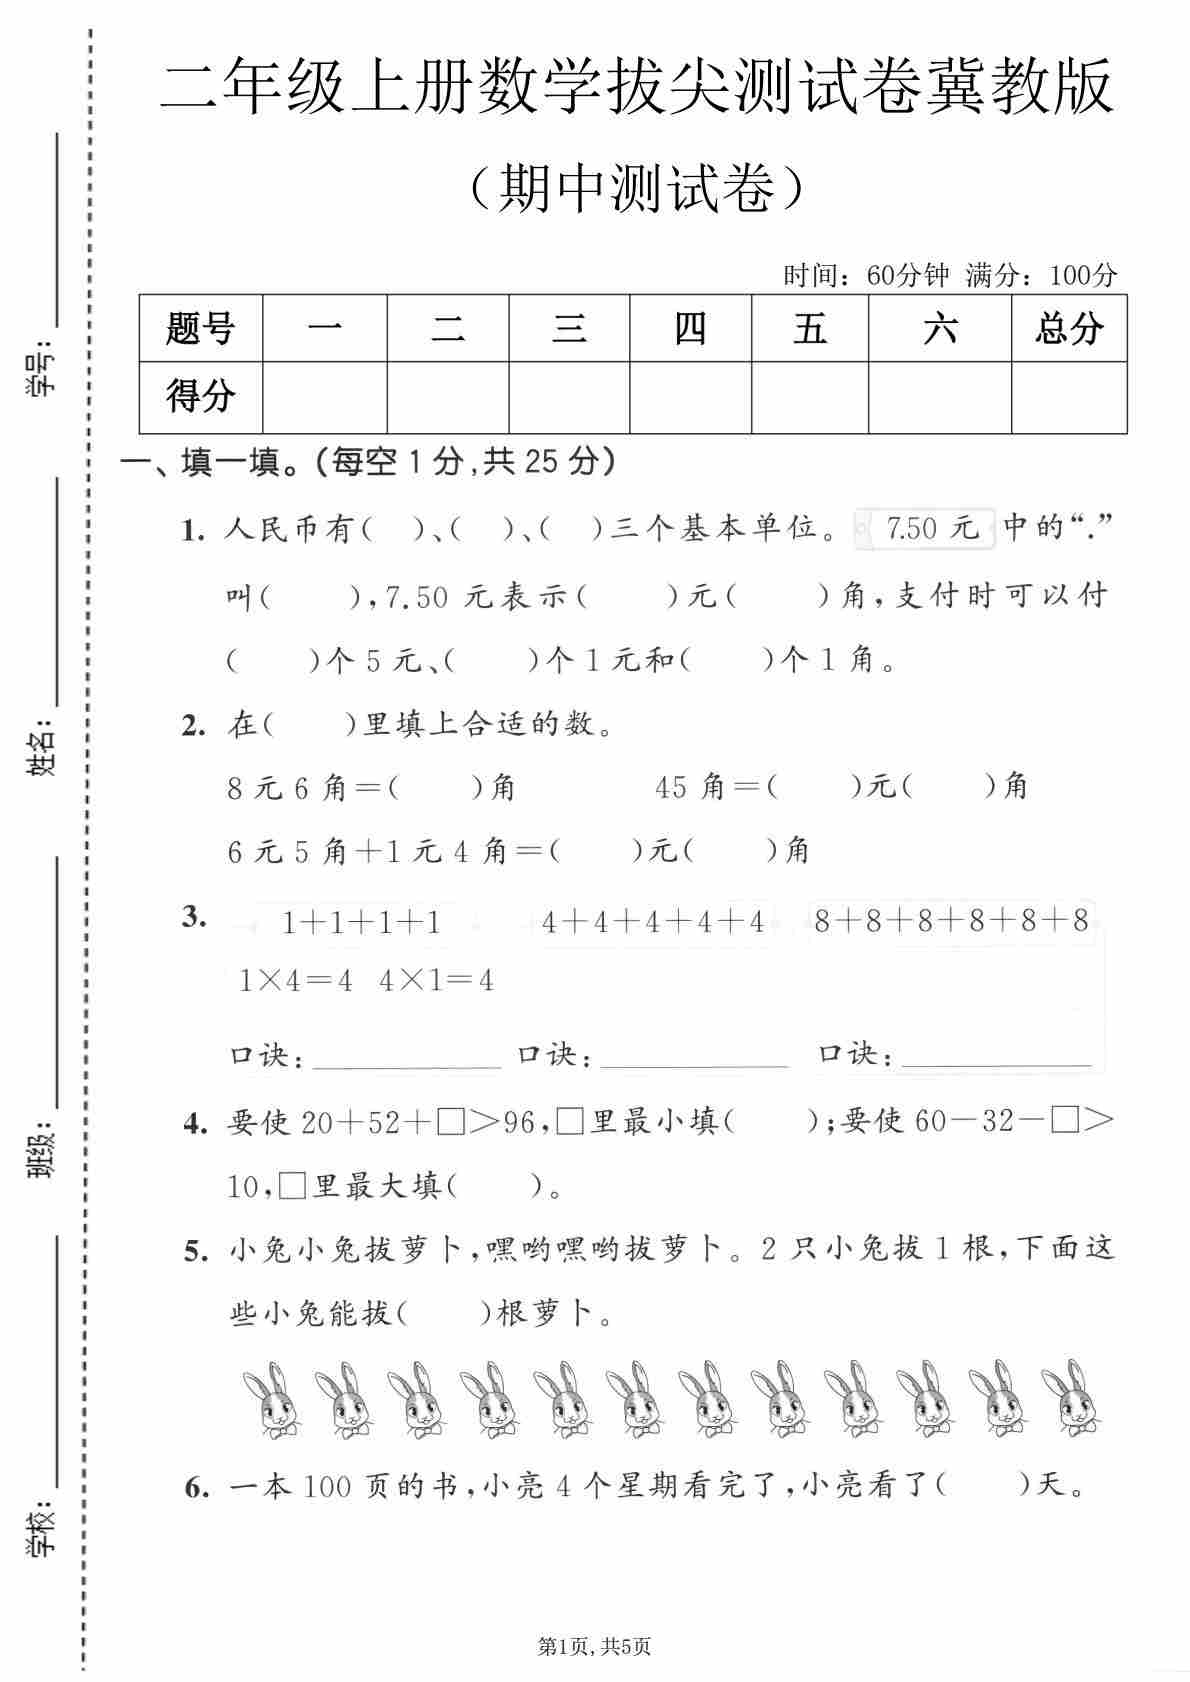 二年级上册数学拔尖测试卷冀教版
（期中测试卷）
时间：60分钟 满分：100分
题号 一 二 三 四 五 六 总分
得分
一、填一填。（每空 1 分，共 25 分）
1. 人民币有（ ）、（ ）、（ ）三个基本单位。 7.50 元 中的“.”
叫（ ），7.50 元表示（ ）元（ ）角，支付时可以付
（ ）个 5 元、（ ）个 1 元和（ ）个 1 角。
2. 在（ ）里填上合适的数。
8 元 6 角＝（ ）角 45 角＝（ ）元（ ）角
6 元 5 角＋1 元 4 角＝（ ）元（ ）角
3. 1＋1＋1＋1 4＋4＋4＋4＋4 8＋8＋8＋8＋8＋8
1×4＝4 4×1＝4
口诀：＿＿＿＿ 口诀：＿＿＿＿ 口诀：＿＿＿＿
4. 要使 20＋52＋□＞96，□里最小填（ ）；要使 60－32－□＞
10，□里最大填（ ）。
5. 小兔小兔拔萝卜，嘿哟嘿哟拔萝卜。2 只小兔拔 1 根，下面这
些小兔能拔（ ）根萝卜。
6. 一本 100 页的书，小亮 4 个星期看完了，小亮看了（ ）天。
第1页，共5页
学号：
姓名：
班级：
学校：